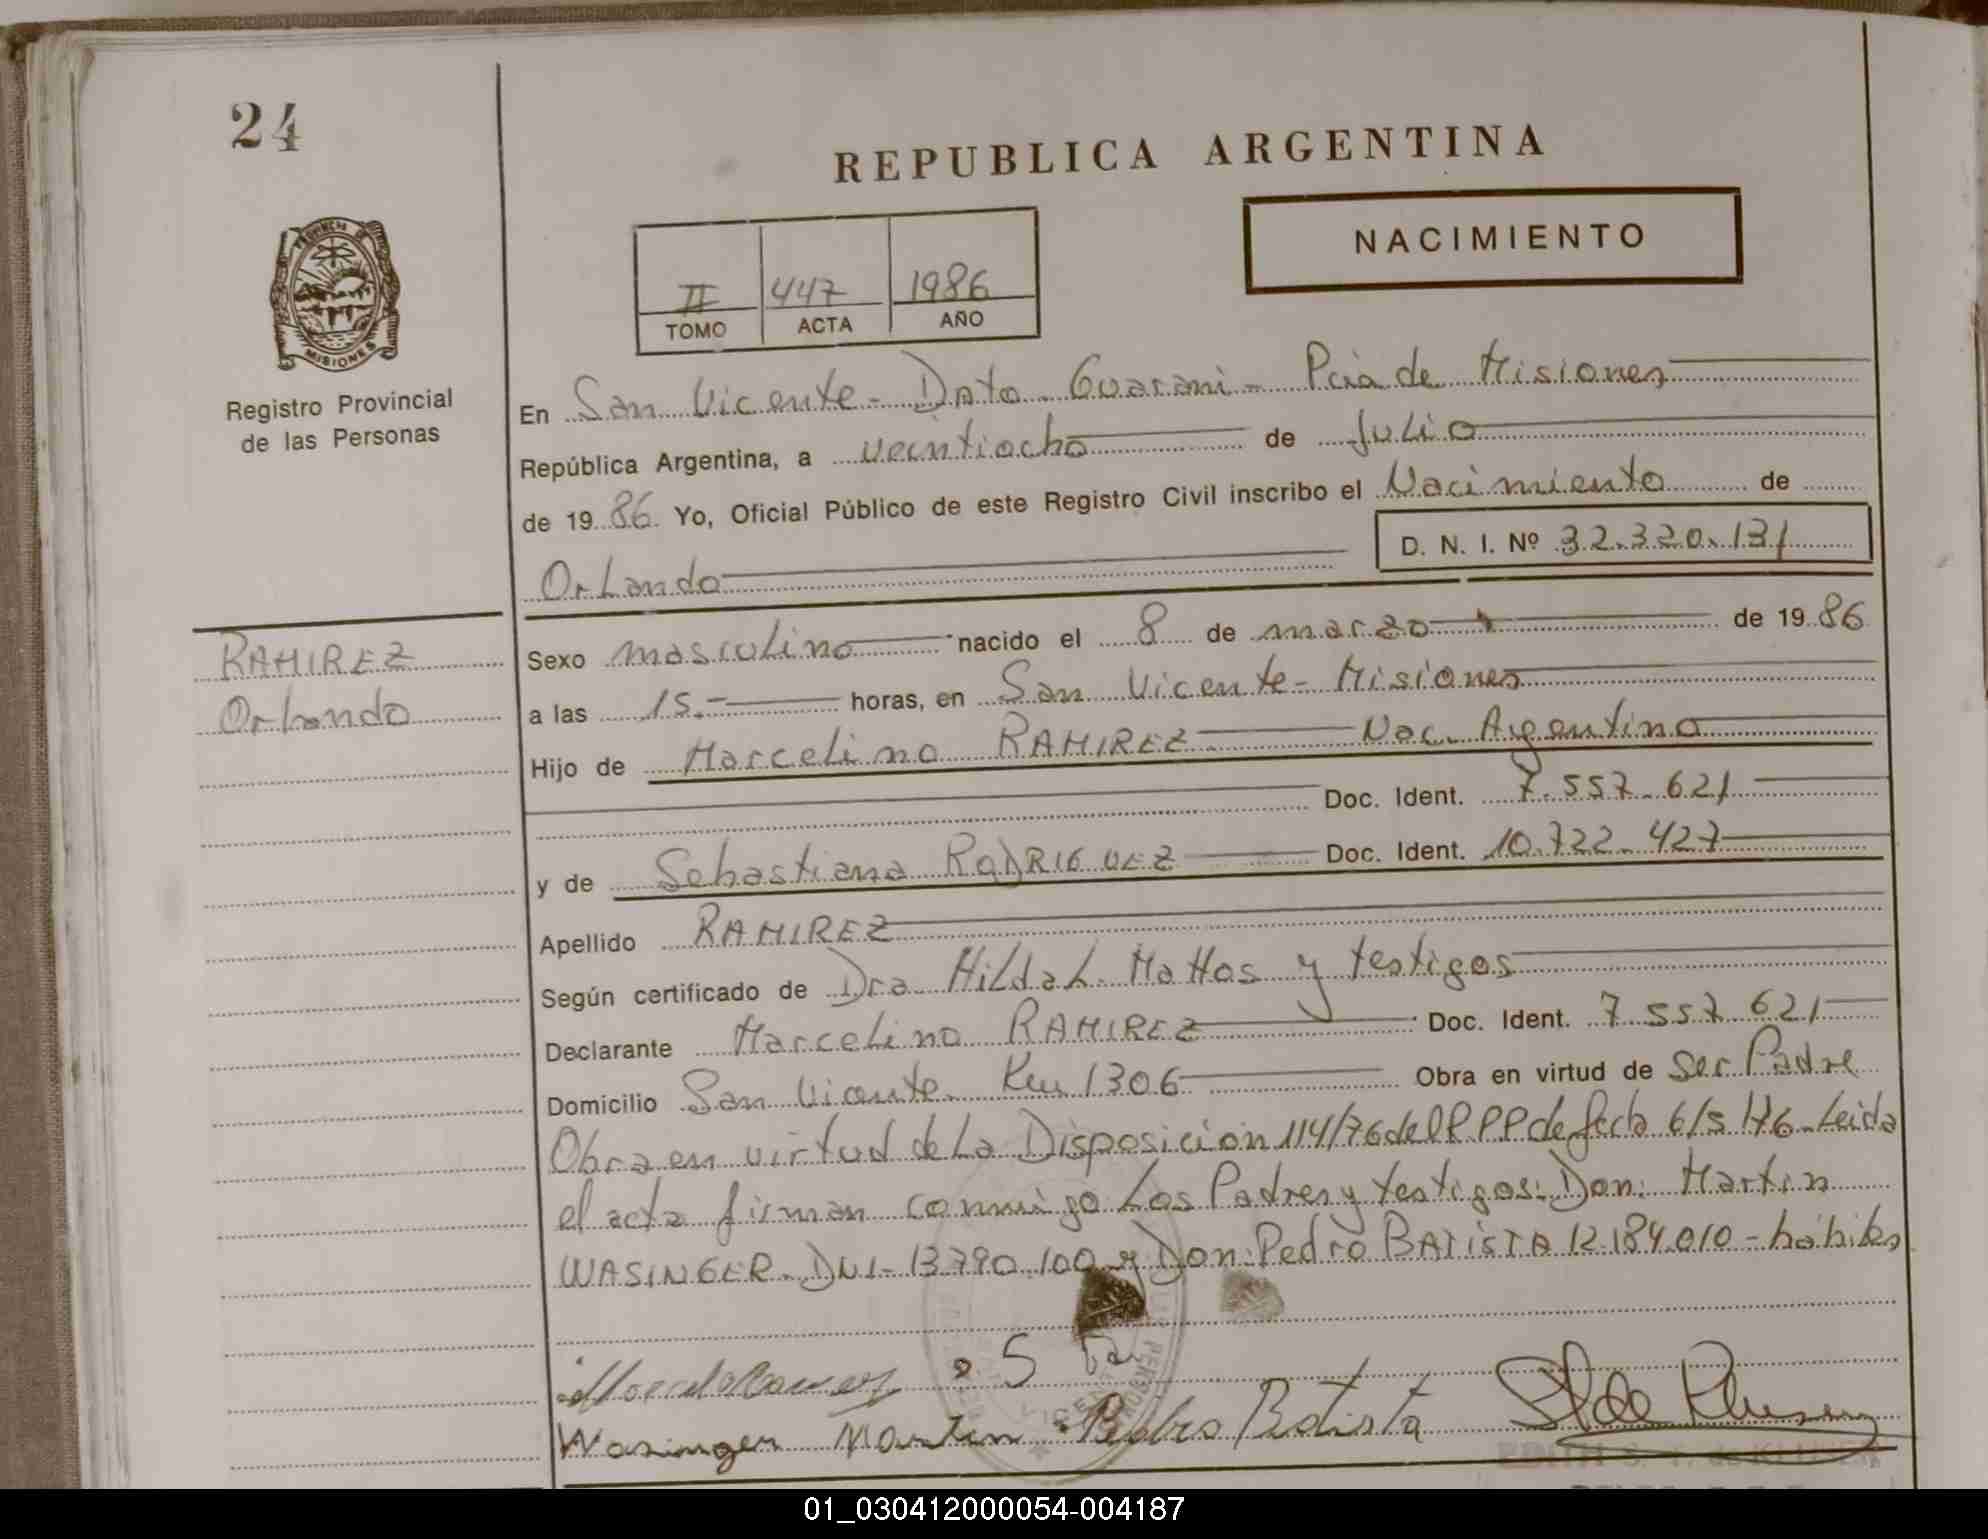 24
REPUBLICA ARGENTINA
NACIMIENTO
II 447 1986
TOMO ACTA AÑO
PROVINCIA DE
MISIONES
Registro Provincial
de las Personas
En San Vicente - Dpto. Guarani - Pcia de Misiones
República Argentina, a veintiocho de Julio
de 1986. Yo, Oficial Público de este Registro Civil inscribo el Nacimiento de
D. N. I. Nº 32.320.131
Orlando
RAMIREZ
Orlando
Sexo masculino nacido el 8 de marzo de 1986
a las 15.- horas, en San Vicente - Misiones
Hijo de Marcelino RAMIREZ Nac. Argentino
Doc. Ident. 7.557.621
y de Sebastiana RODRIGUEZ Doc. Ident. 10.722.427
Apellido RAMIREZ
Según certificado de Dra Hilda L. Mattos y testigos
Declarante Marcelino RAMIREZ Doc. Ident. 7.557.621
Domicilio San Vicente Km 1306 Obra en virtud de Ser Padre
Obra en virtud de La Disposición 114/76 del RPP de fecha 6/5/76. Leida
el acta firman conmigo Los Padres y testigos: Don: Martin
WASINGER. DNI- 13.790.100 y Don: Pedro BATISTA 12.184.010 - hábiles
S
Wasinger Martin Pedro Batista
01_030412000054-004187